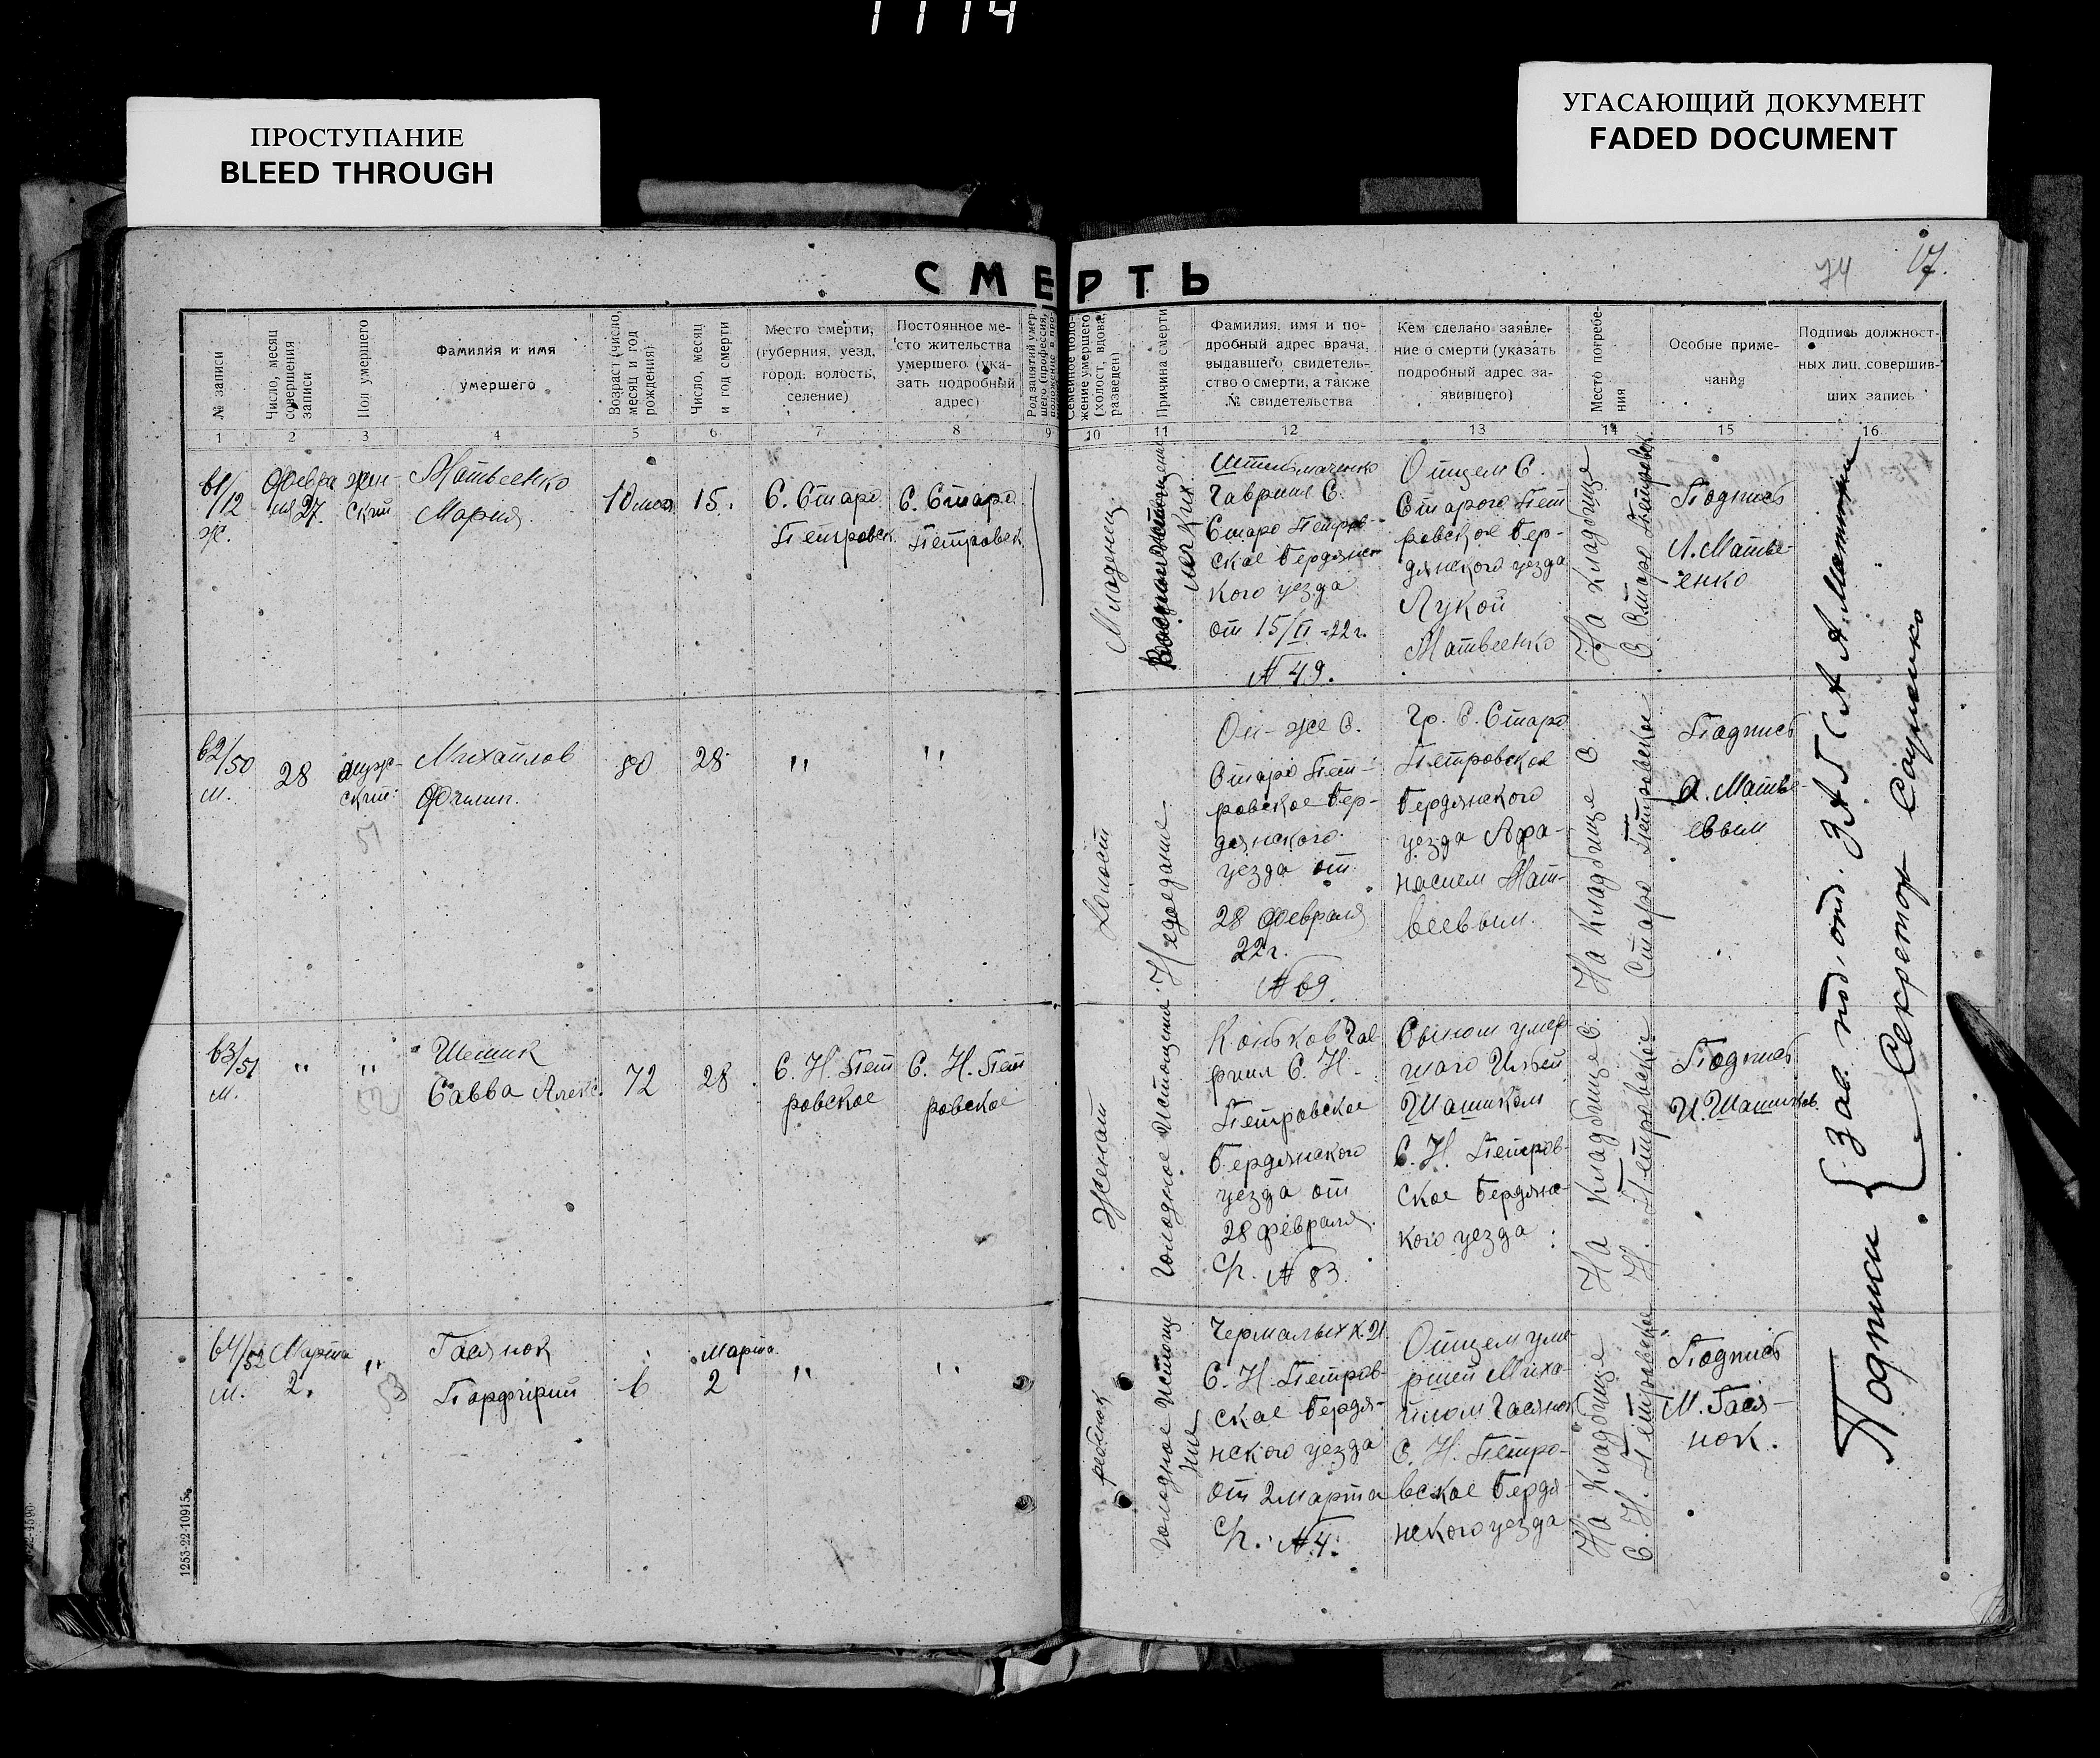 1114
ПРОСТУПАНИЕ
BLEED THROUGH
УГАСАЮЩИЙ ДОКУМЕНТ
FADED DOCUMENT
74 17.
СМЕРТЬ
№ записи
Число, месяц
совершения
записи
Пол умершего
Фамилия и имя
умершего
Возраст (число,
месяц и год
рождения)
Число, месяц
и год смерти
Место смерти,
(губерния, уезд,
город, волость,
селение)
Постоянное ме-
сто жительства
умершего (ука-
зать подробный
адрес)
Род занятий умер-
шего (профессия,
Семейное поло-
жение умершего
(холост, вдова,
разведен)
Причина смерти
Фамилия, имя и по-
дробный адрес врача,
выдавшего свидетель-
ство о смерти, а также
№ свидетельства
Кем сделано заявле-
ние о смерти (указать
подробный адрес за-
явившего)
Место погребе-
ния
Особые приме-
чания
Подпись должност-
ных лиц, совершив-
ших запись
1 2 3 4 5 6 7 8 9 10 11 12 13 14 15 16
61/12
ж.
Февра
ля 27.
жен-
ский
Матвеенко
Мария
10 мес
15.
С. Старо
Петровск.
С. Старо
Петровск.
Младенец
легких
Гавриил С.
Старо Петров-
ское Бердянс-
кого уезда
от 15/II-22 г.
№ 49.
Отцем С.
Старого Пет
ровское Бер-
дянского уезда
Лукой
Матвеенко
На кладбище
С. Старо Петровское
Подпись
Л. Матве-
енко
62/50
м.
28
муж-
ский
51
Михайлов
Филип.
80
28
"
"
Холост
Недоедание
Он-же С.
Старо Пет-
ровское Бер-
дянского
уезда от
28 февраля
22 г.
№ 69
Гр. С. Старо
Петровское
Бердянского
уезда Афа-
насием Мат-
веевым.
На кладбище С.
Старо Петровское
Подпись
А. Матве-
евым
63/51
м.
"
"
52
Шешик
Савва Алекс.
72
28
С. Н. Пет
ровское
С. Н. Пет
ровское
Женат
Голодное истощение
Коньков Гав
риил С. Н.
Петровское
Бердянского
уезда от
28 февраля
№ 83.
Сыном умер
шаго Ильей
Шашиком
С. Н. Петров-
ское Бердянс-
кого уезда
На кладбище С.
Н. Петровское
Подпись
И. Шашиков.
64/52
м.
Марта
2.
"
53
Гаянок
Порфирий
6
Марта
2
"
"
ребенок
Голодное истоще
ние
Чермалых К. И
С. Н. Петров-
ское Бердя-
нского уезда
от 2 марта
№ 4.
Отцем уме-
ршей Миха-
илом Гаянок
С. Н. Петро-
вское Бердя-
нского уезда
На кладбище
С. Н. Петровское
Подпись
М. Гая-
нок.
Подписи
Зав. под. отд. ЗАГС А
Секретарь
1253-22-10915